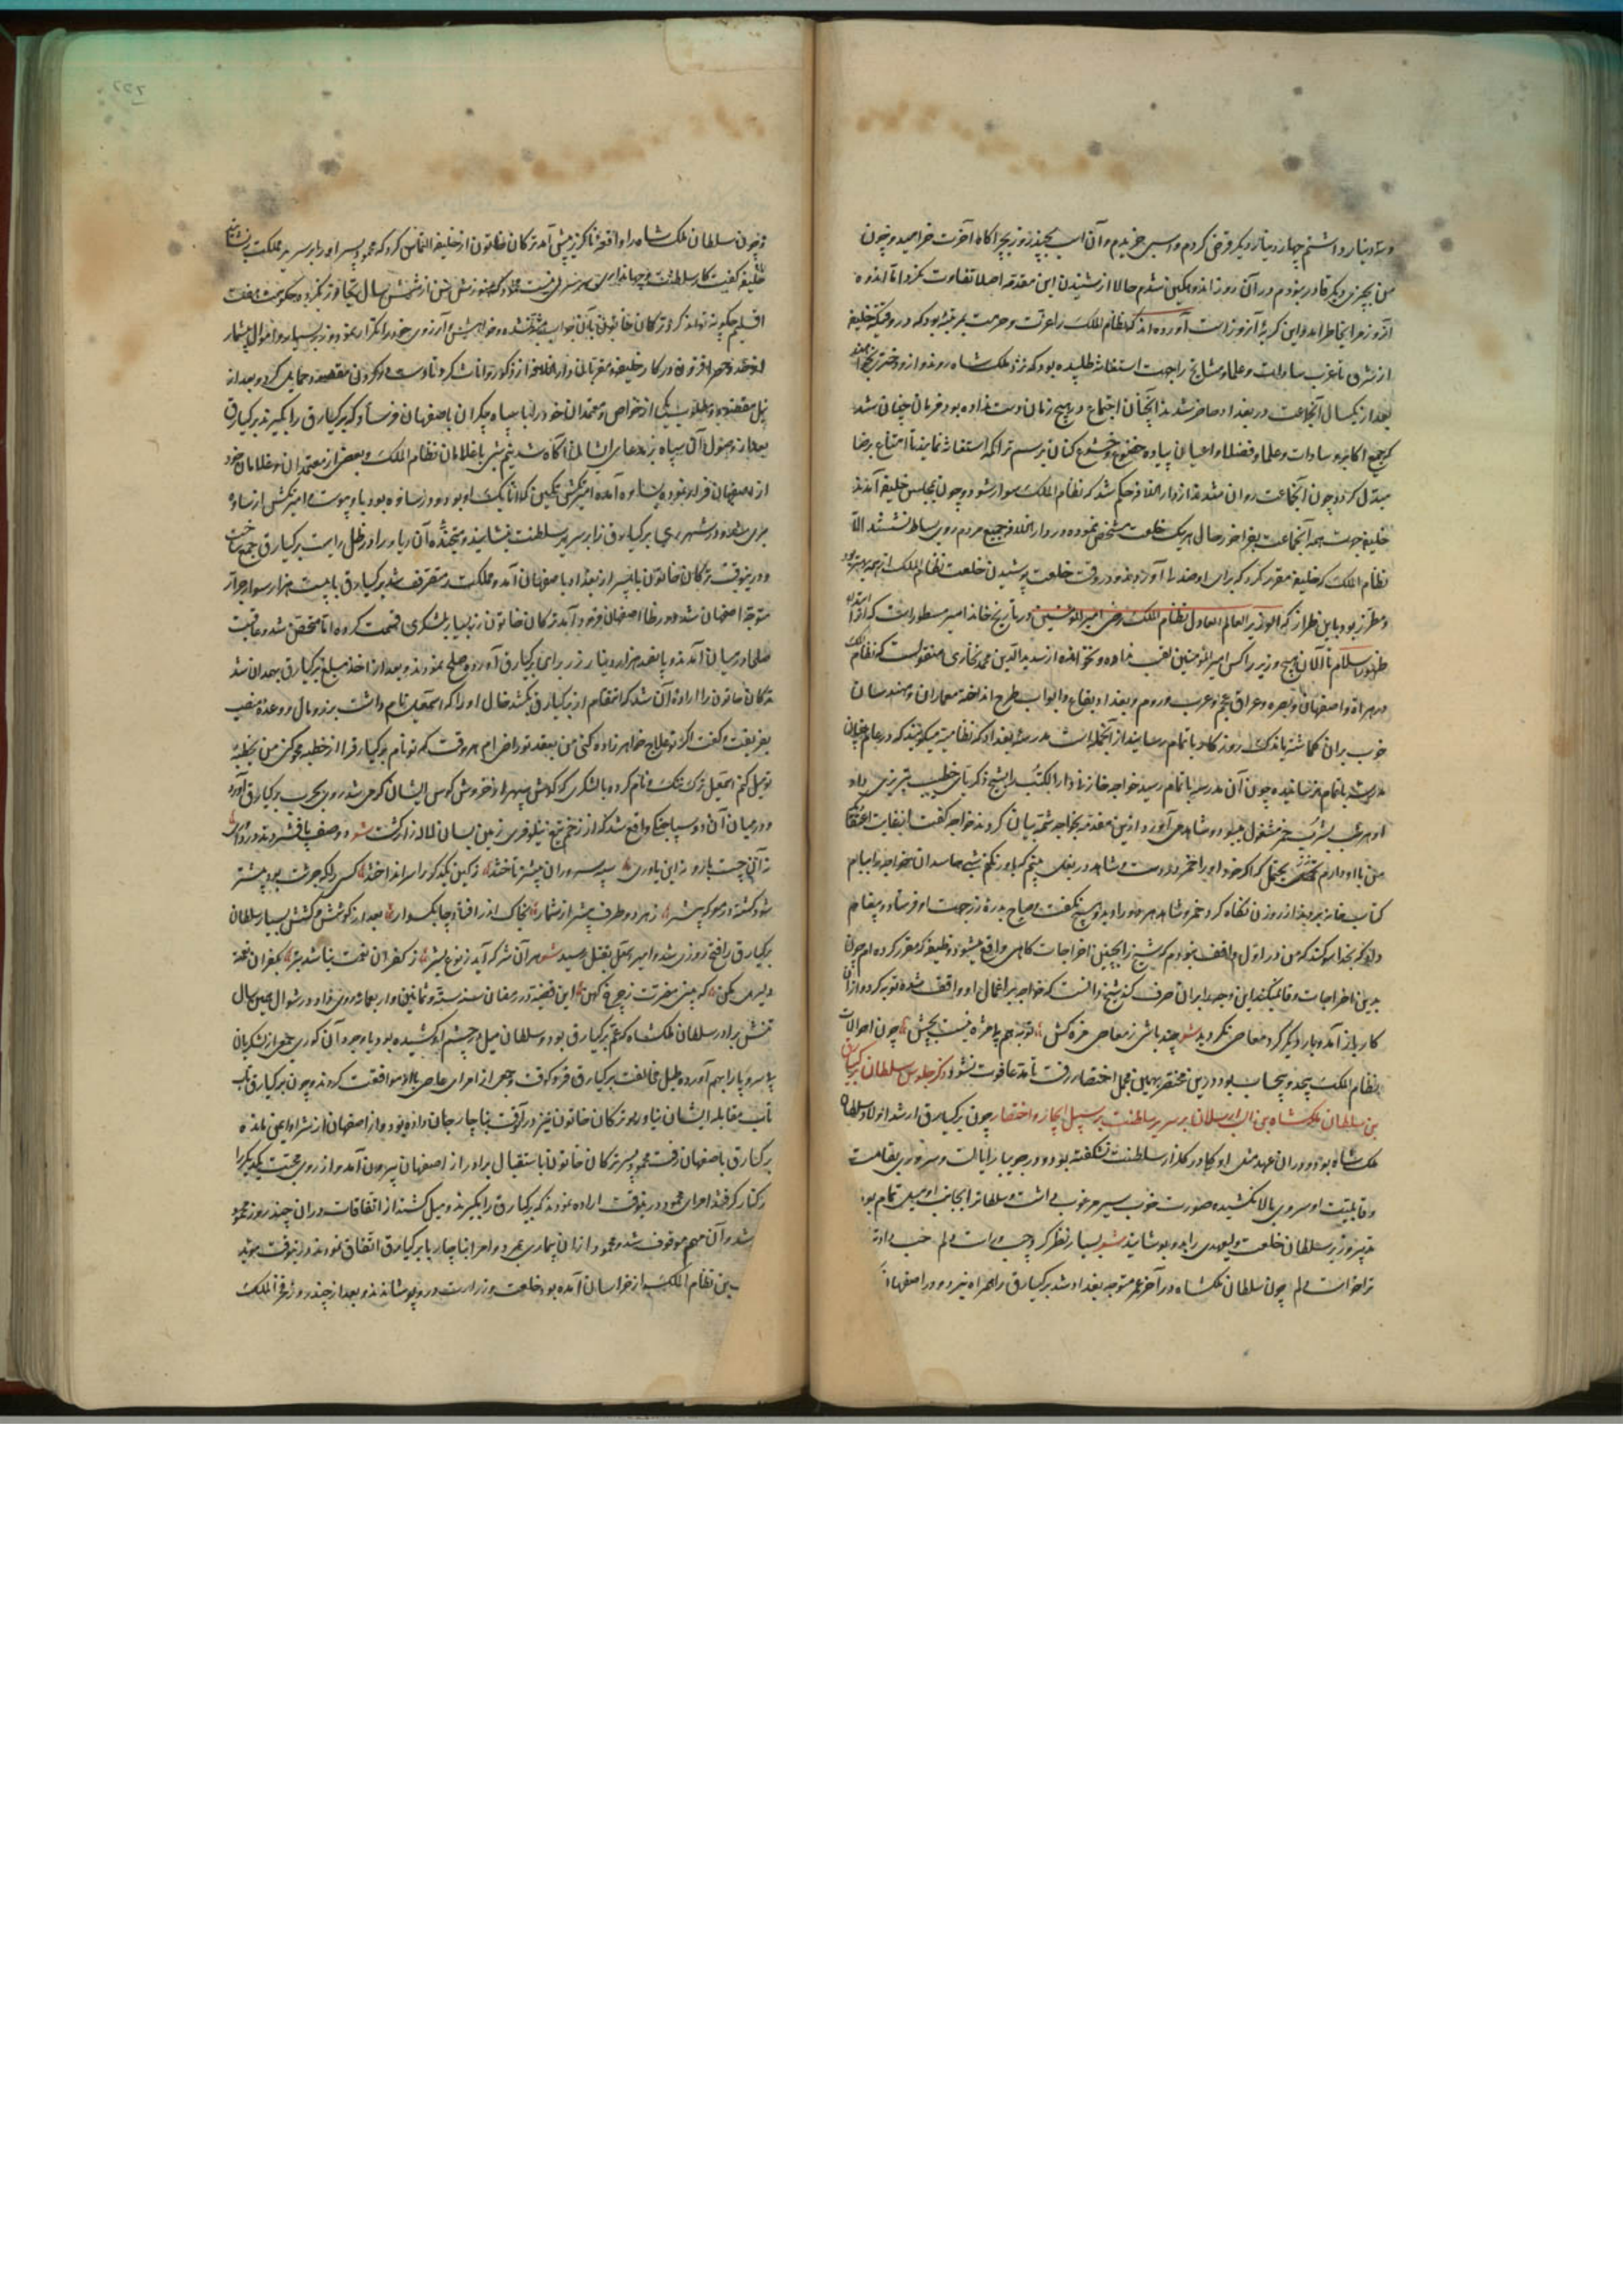 و سه دینار داشتم چهار دینار دیگر قرض کردم و اسبی خریدم و آن اسب چند روز بچراگاه آخرت خرامید و چون
من بچیزی دیگر قادر نبودم در آن روز اندوهگین شدم حالا از شنیدن این مقدمه اصلا تفاوت نکرد اما اندوه
آن روز مرا بخاطر آمد و این گریه آن روز است آورده اند که نظام الملک را عزت و حرمت بمرتبه بود که در وقتیکه خلیفه
از شرق تا غرب سادات و علما و مشایخ را جهت استغاثه طلبیده بود که نزد ملکشاه روند و از و دختر بخواهند
بعد از یکسال آنجماعت در بغداد حاضر شدند آنچنان اجتماع در هیچ زمان دست نداده بود فرمان چنان شد
که جمیع اکابر و سادات و علما و فضلا و اعیان پیاده خضوع و خشوع کنان برسم تراکمه استغاثه نمایند تا امتناع برضا
مبدل گردد چون آنجماعت روان شدند از دار الخلافه حکم شد که نظام الملک سوار شود و چون بمجلس خلیفه آمدند
خلیفه جهت همه آنجماعت بفراخور حال هر یک خلعت مشخص نموده در دار الخلافه جمیع مردم روی بساط نشستند الا
نظام الملک که خلیفه مقرر کرد که برای او مسند آوردند و در وقت خلعت پوشیدن خلعت نظام الملک از همه بهتر بود
و مطرز بود باین طراز که الوزیر العالم العادل نظام الملک رضی امیر المؤمنین و در تاریخ خاند امیر مسطور است که از ابتدای
ظهور اسلام تا آلان هیچ وزیر را کس امیر المؤمنین لقب نداده و نخوانده از سدید الدین محمد بخاری منقولست که نظام الملک
در هراة و اصفهان و بصره و عراق عجم و عرب و روم و بغداد بقاع و ابواب طرح انداخته معماران و مهندسان
خوب بران گماشته باندک روزگار باتمام رسانید از آنجمله است مدرسه بغداد که نظامیه میگویند که در عالم چنان
مدرسه باتمام نرسانیده چون آن مدرسه باتمام رسید خواجه خازنی دار الکتب را بشیخ زکریای خطیب تبریزی داد
او هر شب بشرب خمر مشغول میبود و شاهدی آورد ازین مقدمه بخواجه شمه بیان کردند خواجه گفت
کتاب خانه بر آمد از روزن نگاه کرد خمر و شاهد هر دو را دید و هیچ نگفت و صباح بدره زر جهت او فرستاد و پیغام
داد که بخدا سوگند که من در اول واقف نبودم که شیخ را اینچنین اخراجات گاهی واقع میشود وظیفه که مقرر کرده ام چون
بدین اخراجات وفا نمیکند این وجه را بران صرف کند شیخ دانست که خواجه بر افعال او واقف شده توبه کرد و از آن
کار باز آمد و بار دیگر گرد معاصی نگردید شعر چند باشی ز معاصی مزه کش توبه هم بامزه نیست بچش چون احوالات
نظام الملک بیحد و بیحساب بود درین مختصر بهمین مجمل اختصار رفت تا مدعا فوت نشود ذکر جلوس سلطان برکیارق
بن سلطان ملکشاه بن الب ارسلان بر سریر سلطنت بر سبیل ایجاز و اختصار چون برکیارق ارشد اولاد سلطان
ملکشاه بود و در ان عهد مثل او گلی در گلزار سلطنت نشکفته بود و در جویبار ایالت و سروری بقامت
و قابلیت او سروی بالا نکشیده صورت خوب سیر مرغوب داشت و سلطانرا بجانب او میل تمام بود
وزیر سلطان خلعت ولیعهدی را بدو پوشانید شعر بسیار نظر کرد
ترا خواست دلم چون سلطان ملکشاه در آخر عمر متوجه بغداد شد برکیارق را همراه نبرد و در اصفهان
و چون سلطان ملکشاه را واقعه ناگزیر پیش آمد ترکان خاتون از خلیفه التماس کرد که محمود پسر او را بر سریر مملکت بنشاند
خلیفه گفت کار سلطنت و جهانداری که هنوز سنش از شش سال تجاوز نکرده حکومت هفت
اقلیم چگونه تواند کرد ترکان خاتون بآن جواب متقاعد نشده خواهش و آرزوی خود را تکرار نمود و زر بسیار و اموال بیشمار
نیل مقصود و مطلوب یکی از خواص و معتمدان خود را با سپاه بیکران باصفهان فرستاد که برکیارق را بگیرند برکیارق
بعد از وصول آن سپاه بر مدعای ایشان آگاه شد نیم شبی با غلامان نظام الملک و بعضی از معتمدان و غلامان خود
از اصفهان فرار نموده بساوه آمده امیر کمشتکین که اتابیک او بود و در ساوه بود باو پیوست و امیر کمشتکین از ساوه
بری شد و در شهر ری برکیارق را بر سریر سلطنت بنشانیدند و سکنه آن دیار را در ظل رایت برکیارق جمع ساخت
و درینوقت ترکان خاتون با پسر از بغداد باصفهان آمد و مملکت را متصرف شد برکیارق با بیست هزار سوار جرار
متوجه اصفهان شد و در ظاهر اصفهان فرود آمد ترکان خاتون زر بسیار بلشکری قسمت کرده اما متحصن شد و عاقبت
صلحا در میان آمدند و پانصد هزار دینار زر برای برکیارق آورد و صلح نمودند و بعد از اخذ مبلغ برکیارق بهمدان شد
ترکان خاتون را اراده آن شد که انتقام از برکیارق بکشد خال او را که اسمعیل نام داشت بزر و مال و وعده منصب
بفریفت و گفت اگر تو علاج خواهرزاده کنی من بعقد تو راضی ام هر وقت که تو نام برکیارق را از خطبه محو کنی من بخطبه
تو میل کنم اسمعیل ترک ننگ و نام کرده با لشکری که گوش سپهر از خروش کوس ایشان کر می شد روی بحرب برکیارق آورد
و در میان آن دو سپاه جنگی واقع شد که از زخم تیغ نیلوفری زمین بسان لاله زار گشت شعر دو صف پا فشردند
شود کشته در معرکه بیشتر ز هر دو طرف بیشتر از شمار بخاک اندر افتاد چابکسوار بعد از کوشش و کشش بسیار سلطان
برکیارق را فتح روزی شد و امیر اسمعیل بقتل رسید شعر هر آن شر که آید ز نوع بشر ز کفران نعمت نباشد بتر بکفران نعمه
دلیری مکن که بینی مضرت ز چرخ کهن این قضیه در رمضان سنه ستة و ثمانین و اربعمائه روی داد و در شوال همین سال
تتش برادر سلطان ملکشاه که عم برکیارق بود و سلطان میل در چشم او کشیده بود با وجود آن کوری جمعی از لشکریان
بی سر و پا را بهم آورده طبل مخالفت برکیارق فرو کوفت و جمعی از امرای عاصی با او موافقت کردند و چون برکیارق
تاب مقابله ایشان نیاورد و ترکان خاتون نیز در آنوقت بناچار جان داده بود و از اصفهان از شر او ایمنی مانده
برکیارق باصفهان رفت محمود پسر ترکان خاتون باستقبال برادر از اصفهان بیرون آمد و از روی محبت یکدیگر را
در کنار گرفتند امرای محمود درینوقت اراده نمودند که برکیارق را بگیرند و میل کشند از اتفاقات در ان چند روز محمود
شد و آن مهم موقوف شد و محمود از ان بیماری بمرد و امرا بناچار با برکیارق اتفاق نمودند و درینوقت مؤید
بن نظام الملک از خراسان آمده بود خلعت وزارت درو پوشانیدند و بعد از چند روز فخر الملک